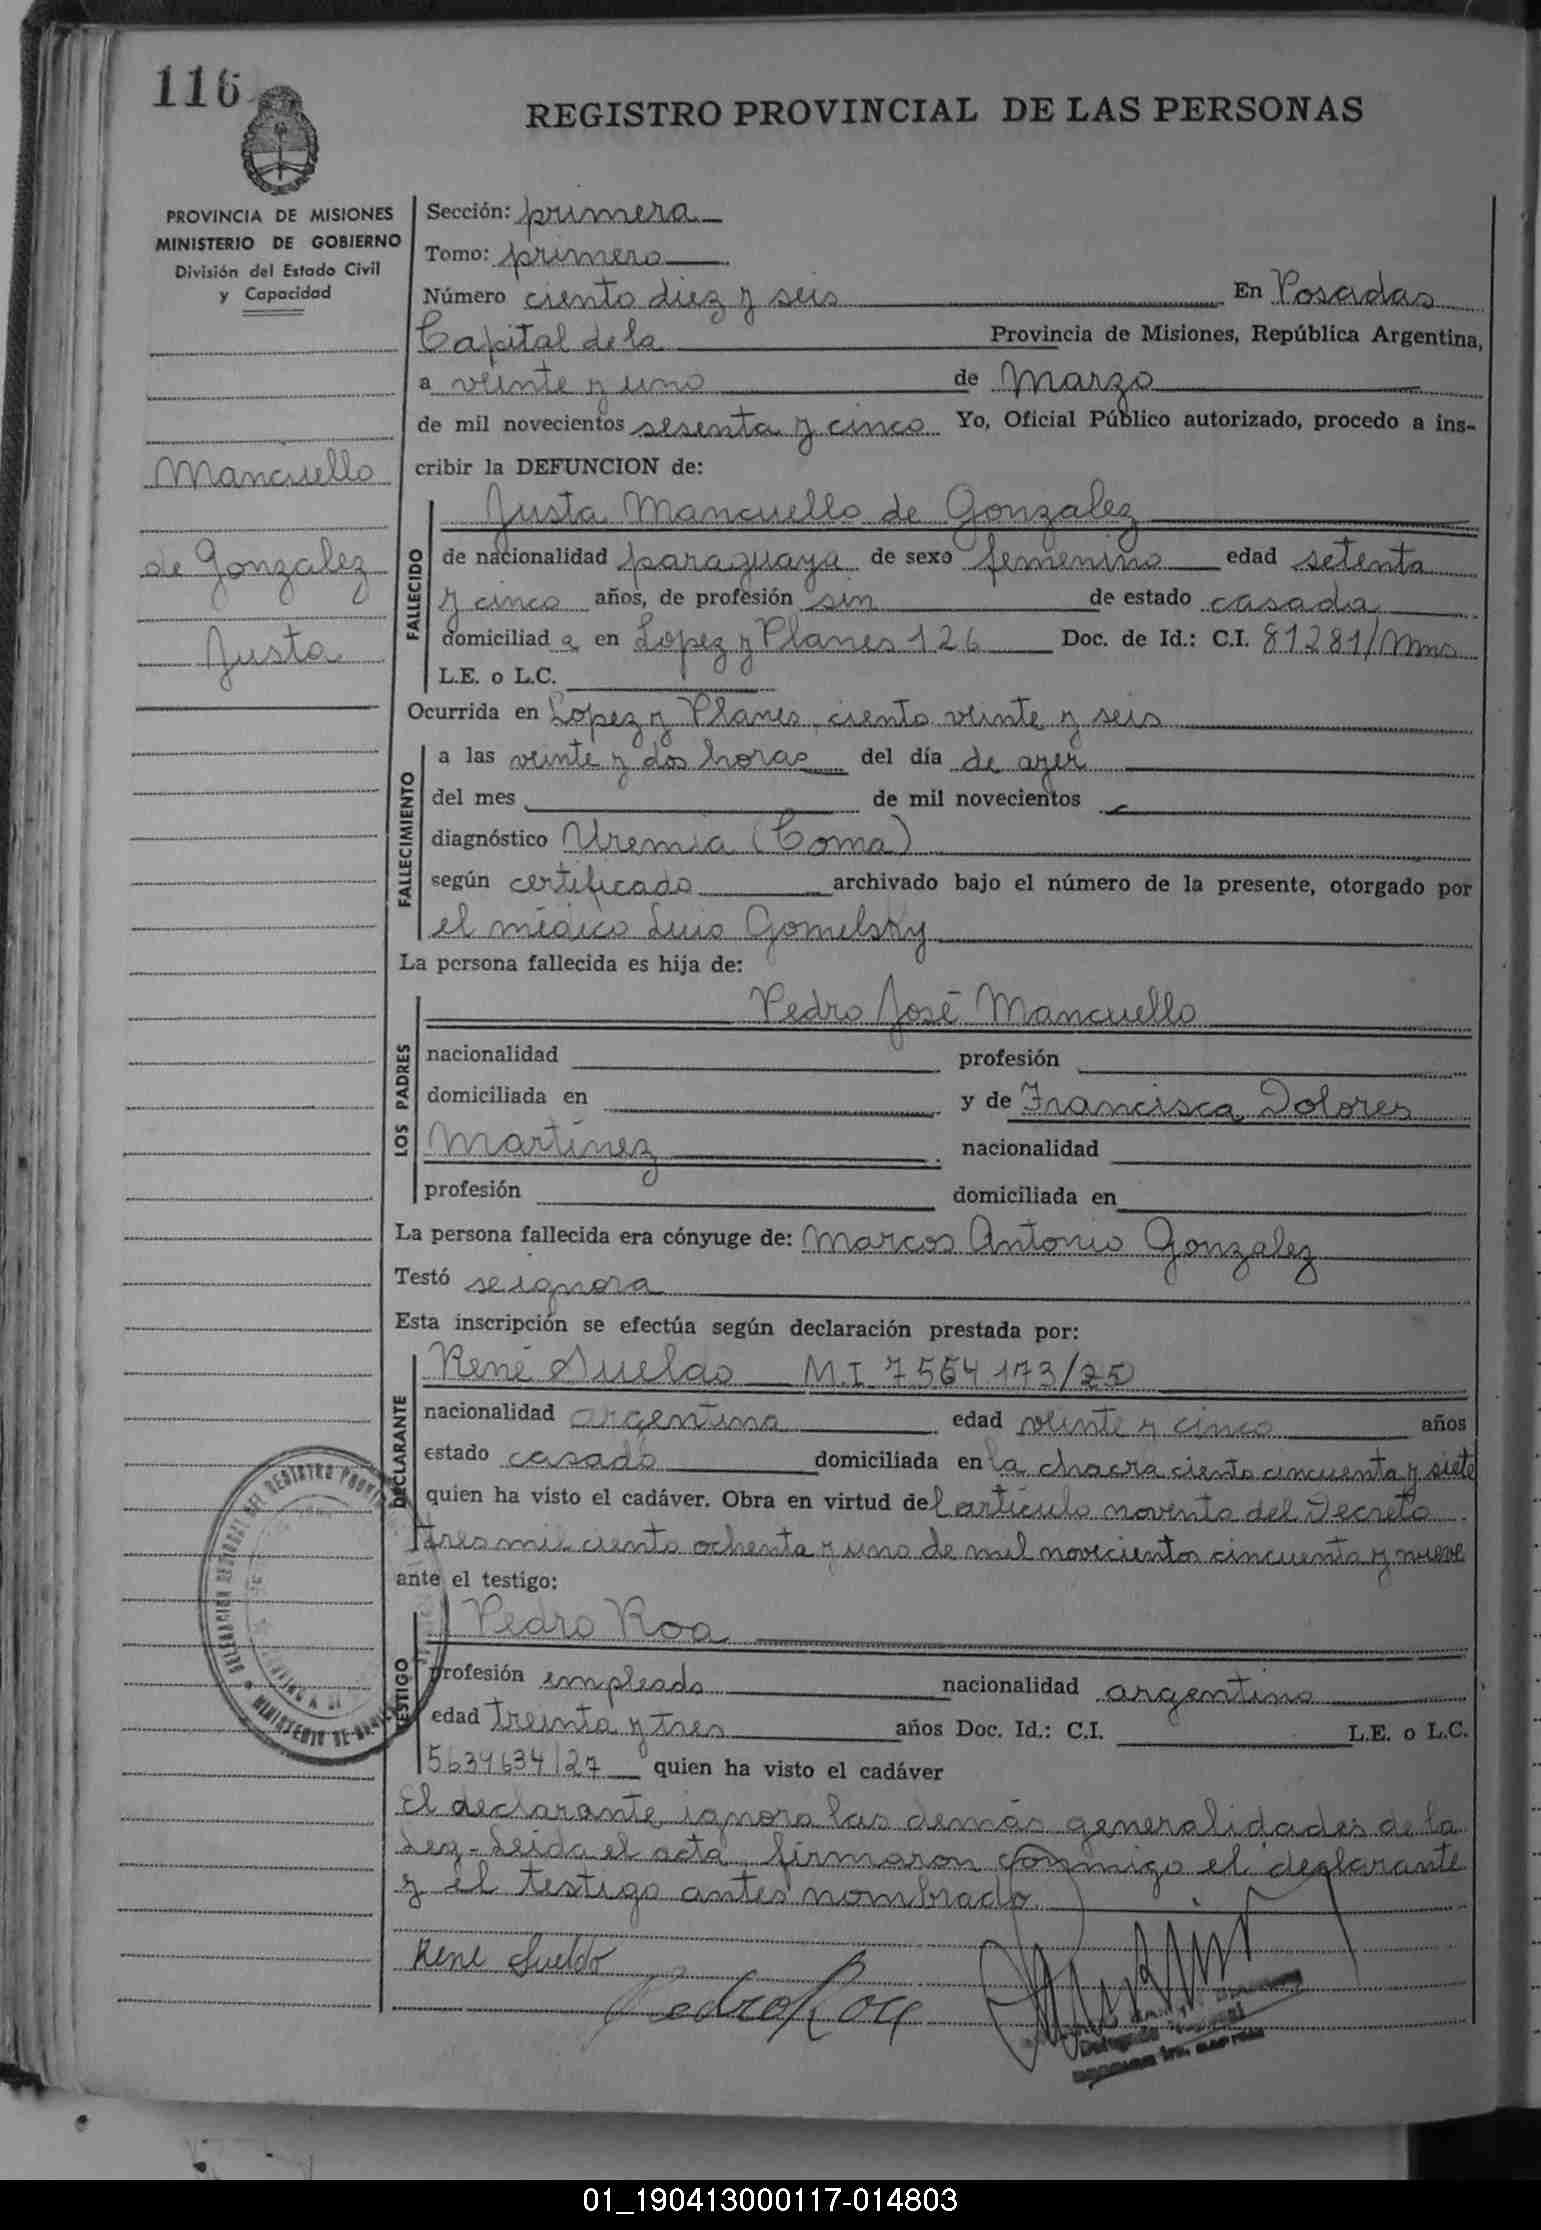 116
REGISTRO PROVINCIAL DE LAS PERSONAS
PROVINCIA DE MISIONES
MINISTERIO DE GOBIERNO
División del Estado Civil
y Capacidad
Mancuello
de Gonzalez
Justa
Sección: primera
Tomo: primero
Número ciento diez y seis En Posadas
Capital de la Provincia de Misiones, República Argentina,
a veinte y uno de Marzo
de mil novecientos sesenta y cinco Yo, Oficial Público autorizado, procedo a ins-
cribir la DEFUNCION de:
FALLECIDO
Justa Mancuello de Gonzalez
de nacionalidad paraguaya de sexo femenino edad setenta
y cinco años, de profesión sin de estado casada
domiciliad a en Lopez y Planes 126 Doc. de Id.: C.I. 81281/Mnes
L.E. o L.C.
Ocurrida en Lopez y Planes, ciento veinte y seis
FALLECIMIENTO
a las veinte y dos horas del día de ayer
del mes de mil novecientos
diagnóstico Uremia (Coma)
según certificado archivado bajo el número de la presente, otorgado por
el médico Luis Gomelsky
La persona fallecida es hija de:
LOS PADRES
Pedro José Mancuello
nacionalidad profesión
domiciliada en y de Francisca Dolores
Martínez nacionalidad
profesión domiciliada en
La persona fallecida era cónyuge de: Marcos Antonio Gonzalez
Testó se ignora
Esta inscripción se efectúa según declaración prestada por:
DECLARANTE
René Sueldo M.I 7564173/25
nacionalidad argentina edad veinte y cinco años
estado casado domiciliada en la chacra ciento cincuenta y siete
quien ha visto el cadáver. Obra en virtud del artículo noventa del Decreto
tres mil ciento ochenta y uno de mil novecientos cincuenta y nueve
ante el testigo:
TESTIGO
Pedro Roa
profesión empleado nacionalidad argentino
edad treinta y tres años Doc. Id.: C.I. L.E. o L.C.
5634634/27 quien ha visto el cadáver
El declarante ignora las demás generalidades de la
Ley- Leida el acta, firmaron conmigo el declarante
y el testigo antes nombrado
Rene Sueldo
Pedro Roa
01_190413000117-014803